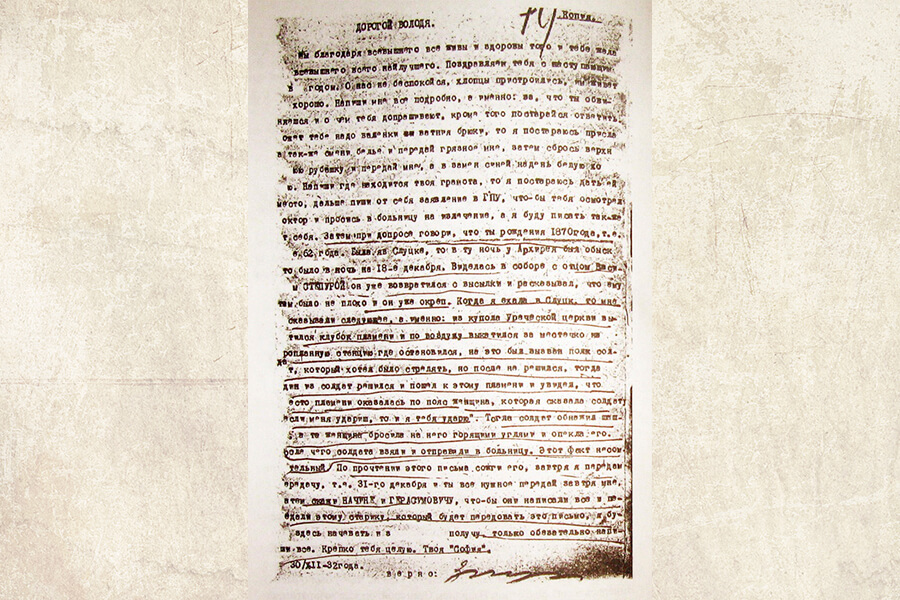 Копия.
ДОРОГОЙ ВОЛОДЯ.
Мы благодаря всевышнего все живы и здоровы того и тебе жела
всевышнего всего найлучшего. Поздравляем тебя с наступающим
годом. О нас не беспокойся, хлопцы пристроились,
хорошо. Напиши мне все подробно, а именно: за, что ты обви-
няешся и о чем тебя допрашивают, кроме того постарайся ответить
тебе надо валенки ватная брюки, то я постараюсь присла
так-же смени белье и передай грязное мне, затем сбрось верхн
рубашку и передай мне, а в замен синей надень белую
ю. Напиши где находится твоя грамота, то я постараюсь дать ей
место, дальше пиши от себя заявление в ГПУ, что-бы тебя осмотрел
октор и просись в больницу на излечение, а я буду писать так-же
т себя. Затем при допросе говори, что ты рождения 1870года, т.е.
62 года. Была я в Слуцке, то в ту ночь у Архирея был обыск
то было в ночь на 18-е декабря. Виделась в соборе с отцом Васи-
м СТЕПУРОЙ он уже возвратился с высылки и расказывал, что ему
там было не плохо и он уже окреп. Когда я ехала в Слуцк, то мне
сказывали следующее, а именно: из купола Уреческой церкви вы-
тился клубок пламени и по воздуху выкатился за местечко на
ропланную станцию где остановился, на это был вызван полк сол-
т, который хотел было стрелять, но после не решился, тогда
дин из солдат решился и пошел к этому пламени и увидел, что
есто пламени оказалась по пояс женщина, которая сказала солдату
если меня ударишь, то и я тебя ударю". Тогда солдат обнажил
та женщина бросила на него горящими углями и опекла его,
осле чего солдата взяли и отправили в больницу. Этот факт
По прочтении этого письма сожги его, завтра я передам
ередачу, т.е. 31-го декабря и ты все нужное передай завтра мне,
скажи и ГЕРАСИМОВИЧУ, что-бы они написали все и
этому старику, который будет передовать это письмо, я бу-
здесь начевать и получу, только обязательно напи-
ши все. Крепко тебя целую. Твоя "София".
30/XII-32года.
верно: